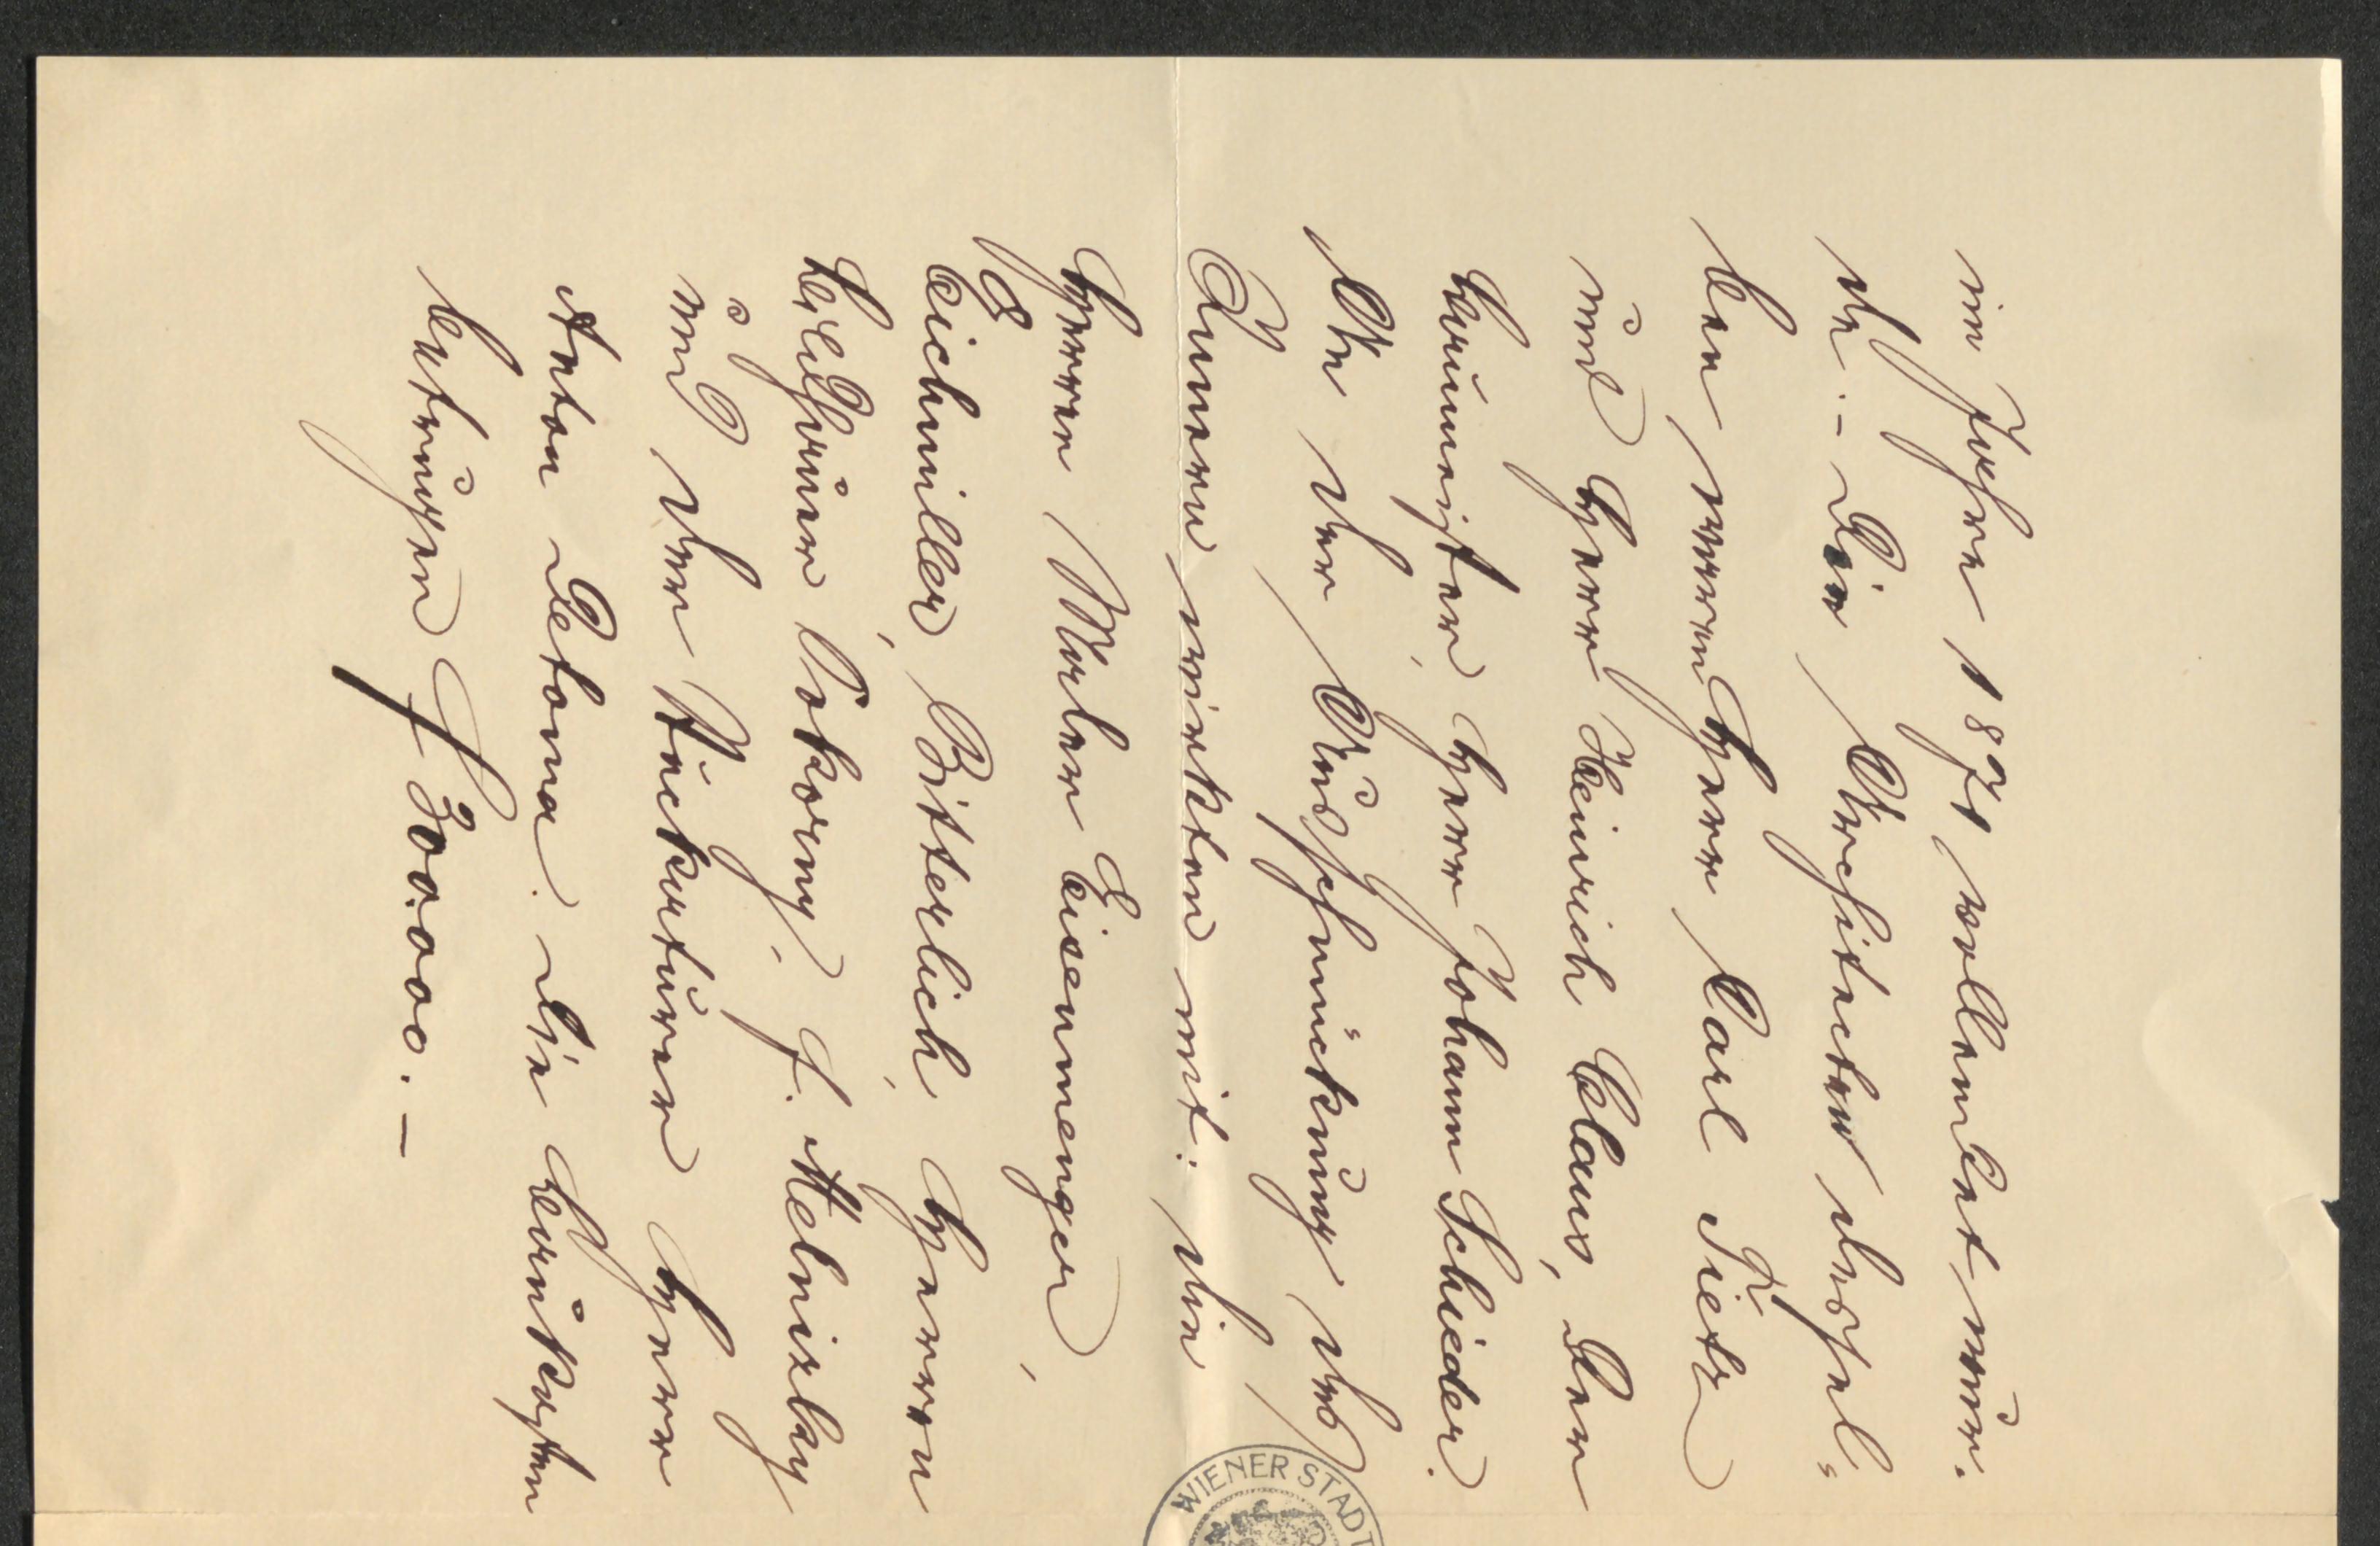 im Jahre 1871 vollendet wur-
de. – Die Architecten dessel-
ben waren Herr Carl Tietz
und Herr Heinrich Claus, der
Baumeister, Herr Johann Schieder.
An der Ausschmückung des
Inneren wirkten mit: die
Herren Maler Eisenmenger,
Eichmiller, Bitterlich, Herren
Bildhauer Pokorny, F. Melnizky
und der Stuckaturer Herr
Anton Detoma. Die Baukosten
betrugen f 300.000. –
WIENER STADT